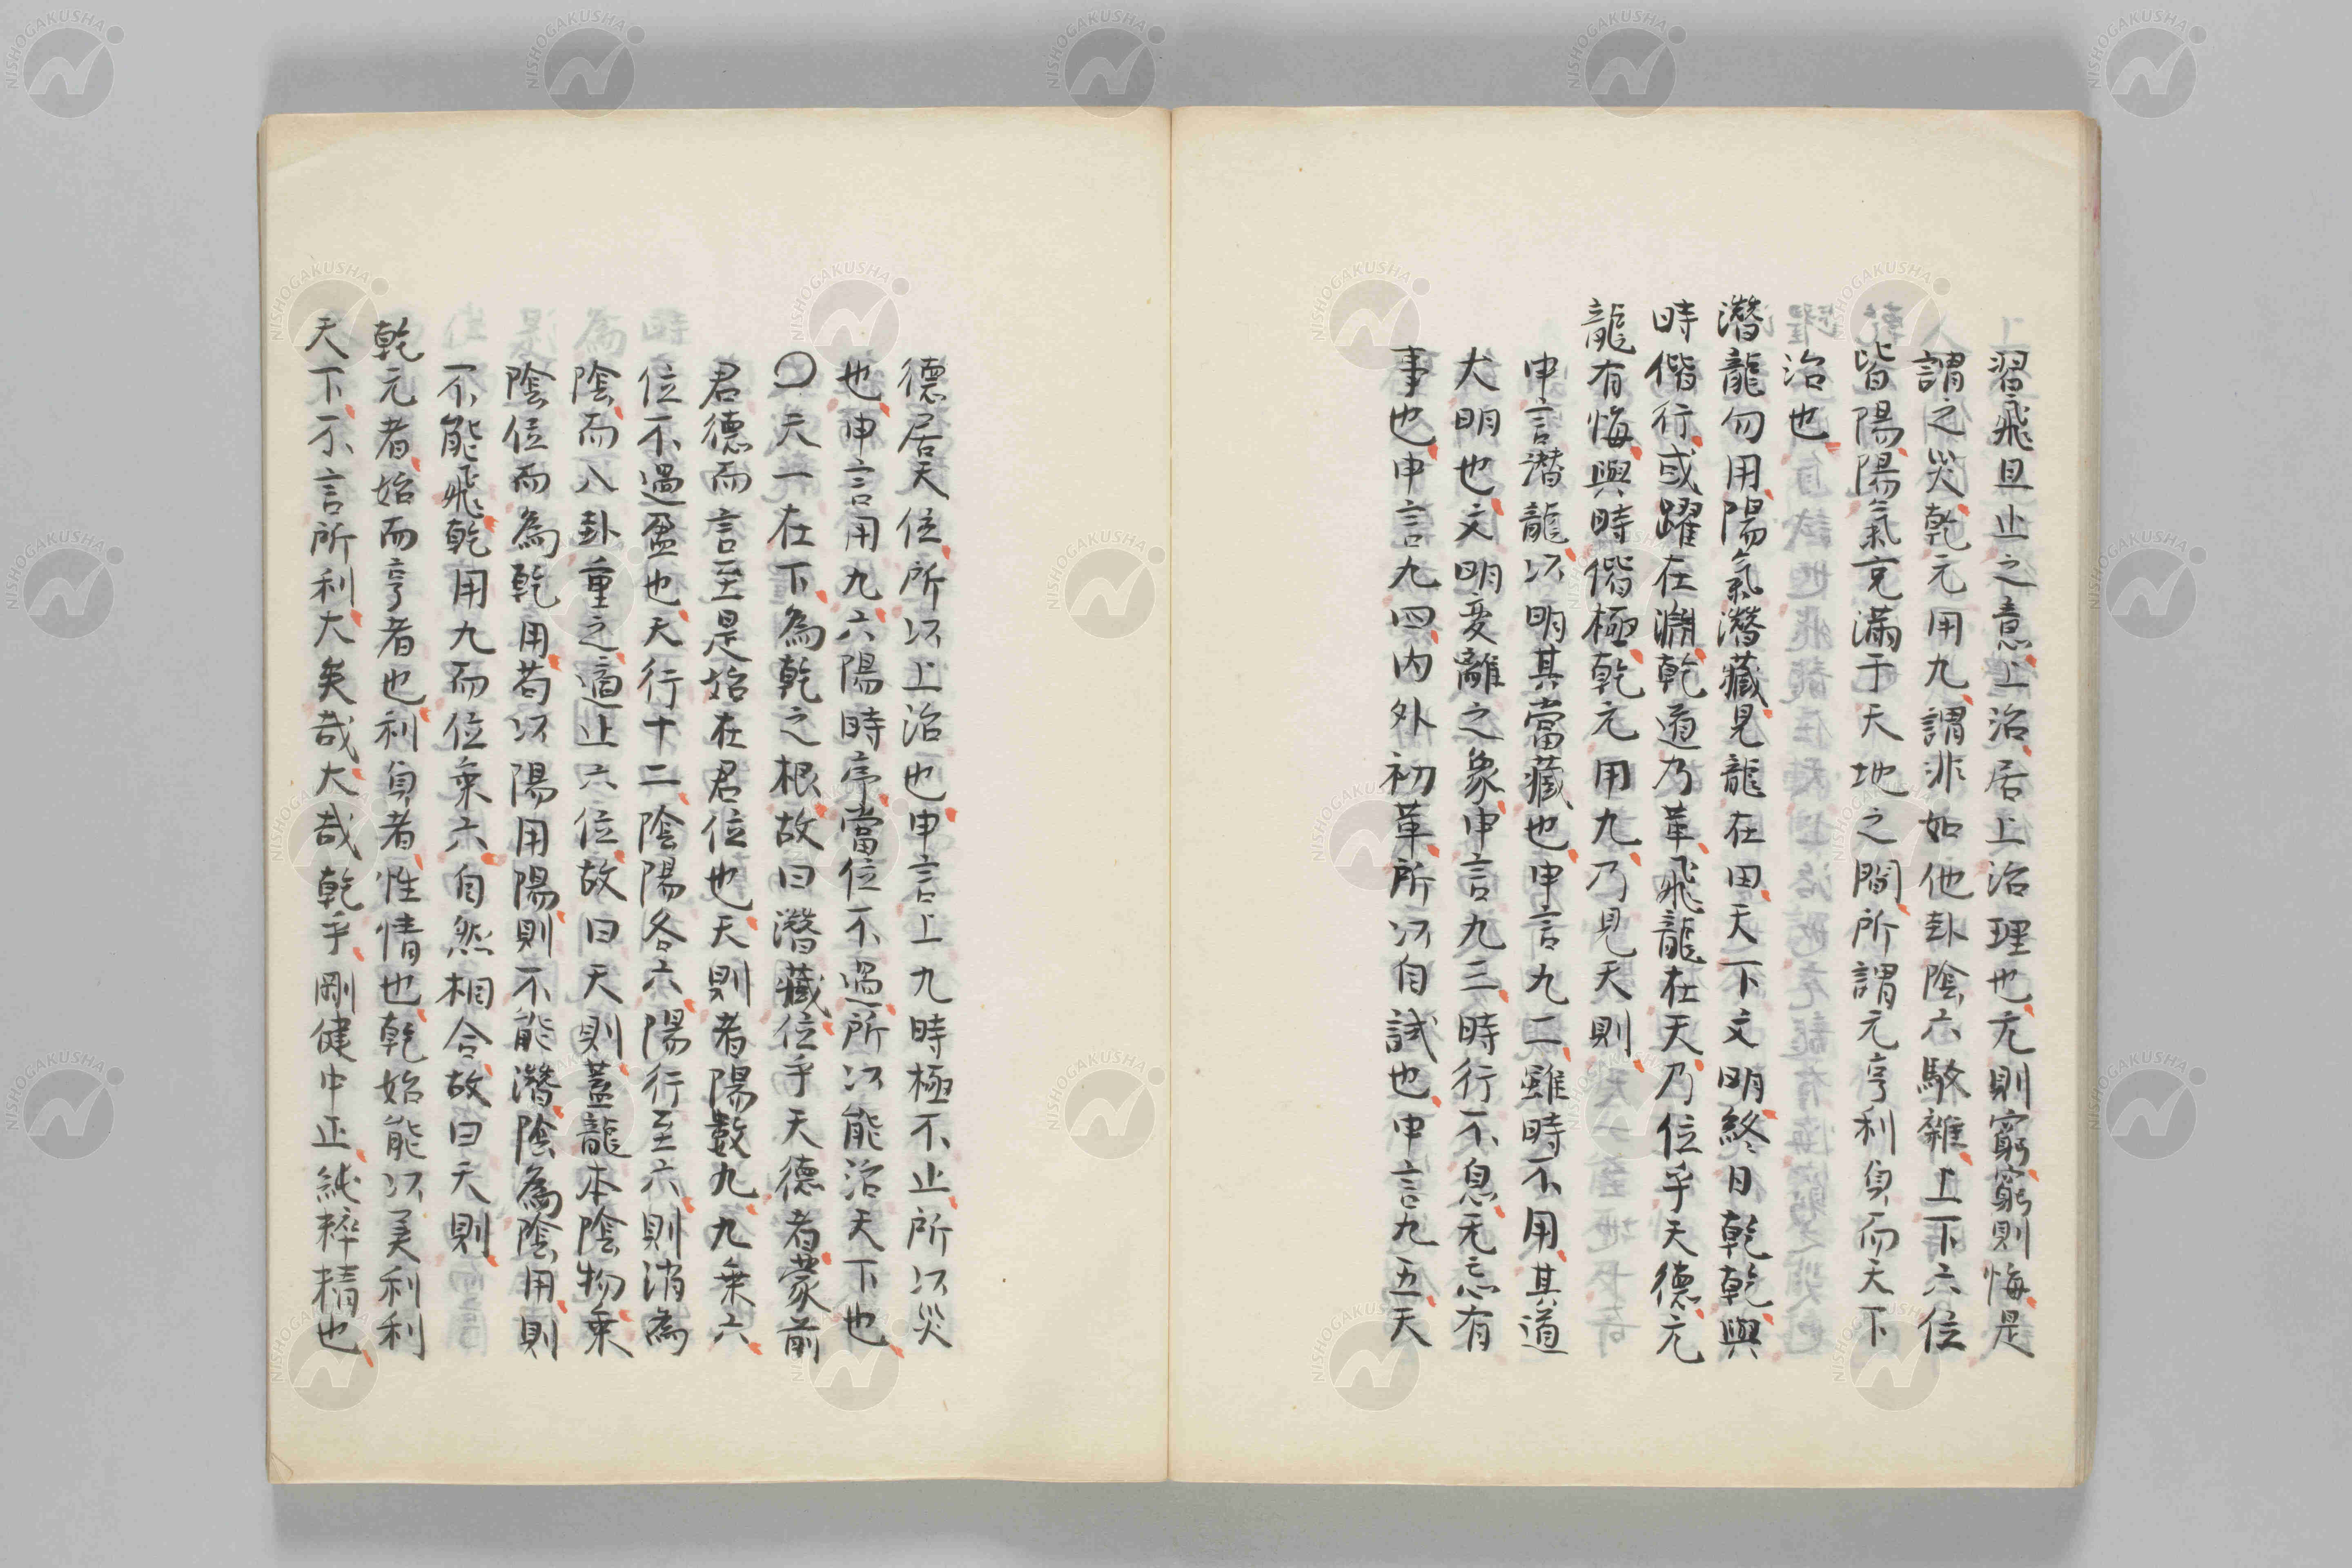 習飛且止之意上治居上治理也亢則窮窮則悔是
謂之災乾元用九謂非如他卦陰六駁雜上下六位
皆陽陽氣充滿于天地之間所謂元亨利貞而天下
治也
潛龍勿用陽氣潛藏見龍在田天下文明終日乾乾與
時偕行或躍在淵乾道乃革飛龍在天乃位乎天德亢
龍有悔與時偕極乾元用九乃見天則
申言潛龍以明其當藏也申言九二雖時不用其道
大明也文明变離之象申言九三時行不息无忘有
事也申言九四内外初革所以自試也申言九五天
德居天位所以上治也申言上九時極不止所以災
也申言用九六陽時亭當位不過所以能治天下也
〇天一在下為乾之根故曰潛藏位乎天德者蒙前
君德而言至是始在君位也天則者陽數九九乘六
位不過盈也天行十二陰陽各六陽行至六則消為
陰而八卦重之適止六位故曰天則蓋龍本陰物乘
陰位而為乾用若以陽用陽則不能潛陰為陰用則
不能飛乾用九而位乘六自然相合故曰天則
乾元者始而亨者也利貞者性情也乾始能以美利利
天下不言所利大矣哉大哉乾乎剛健中正純粹精也
NISHOGAKUSHA